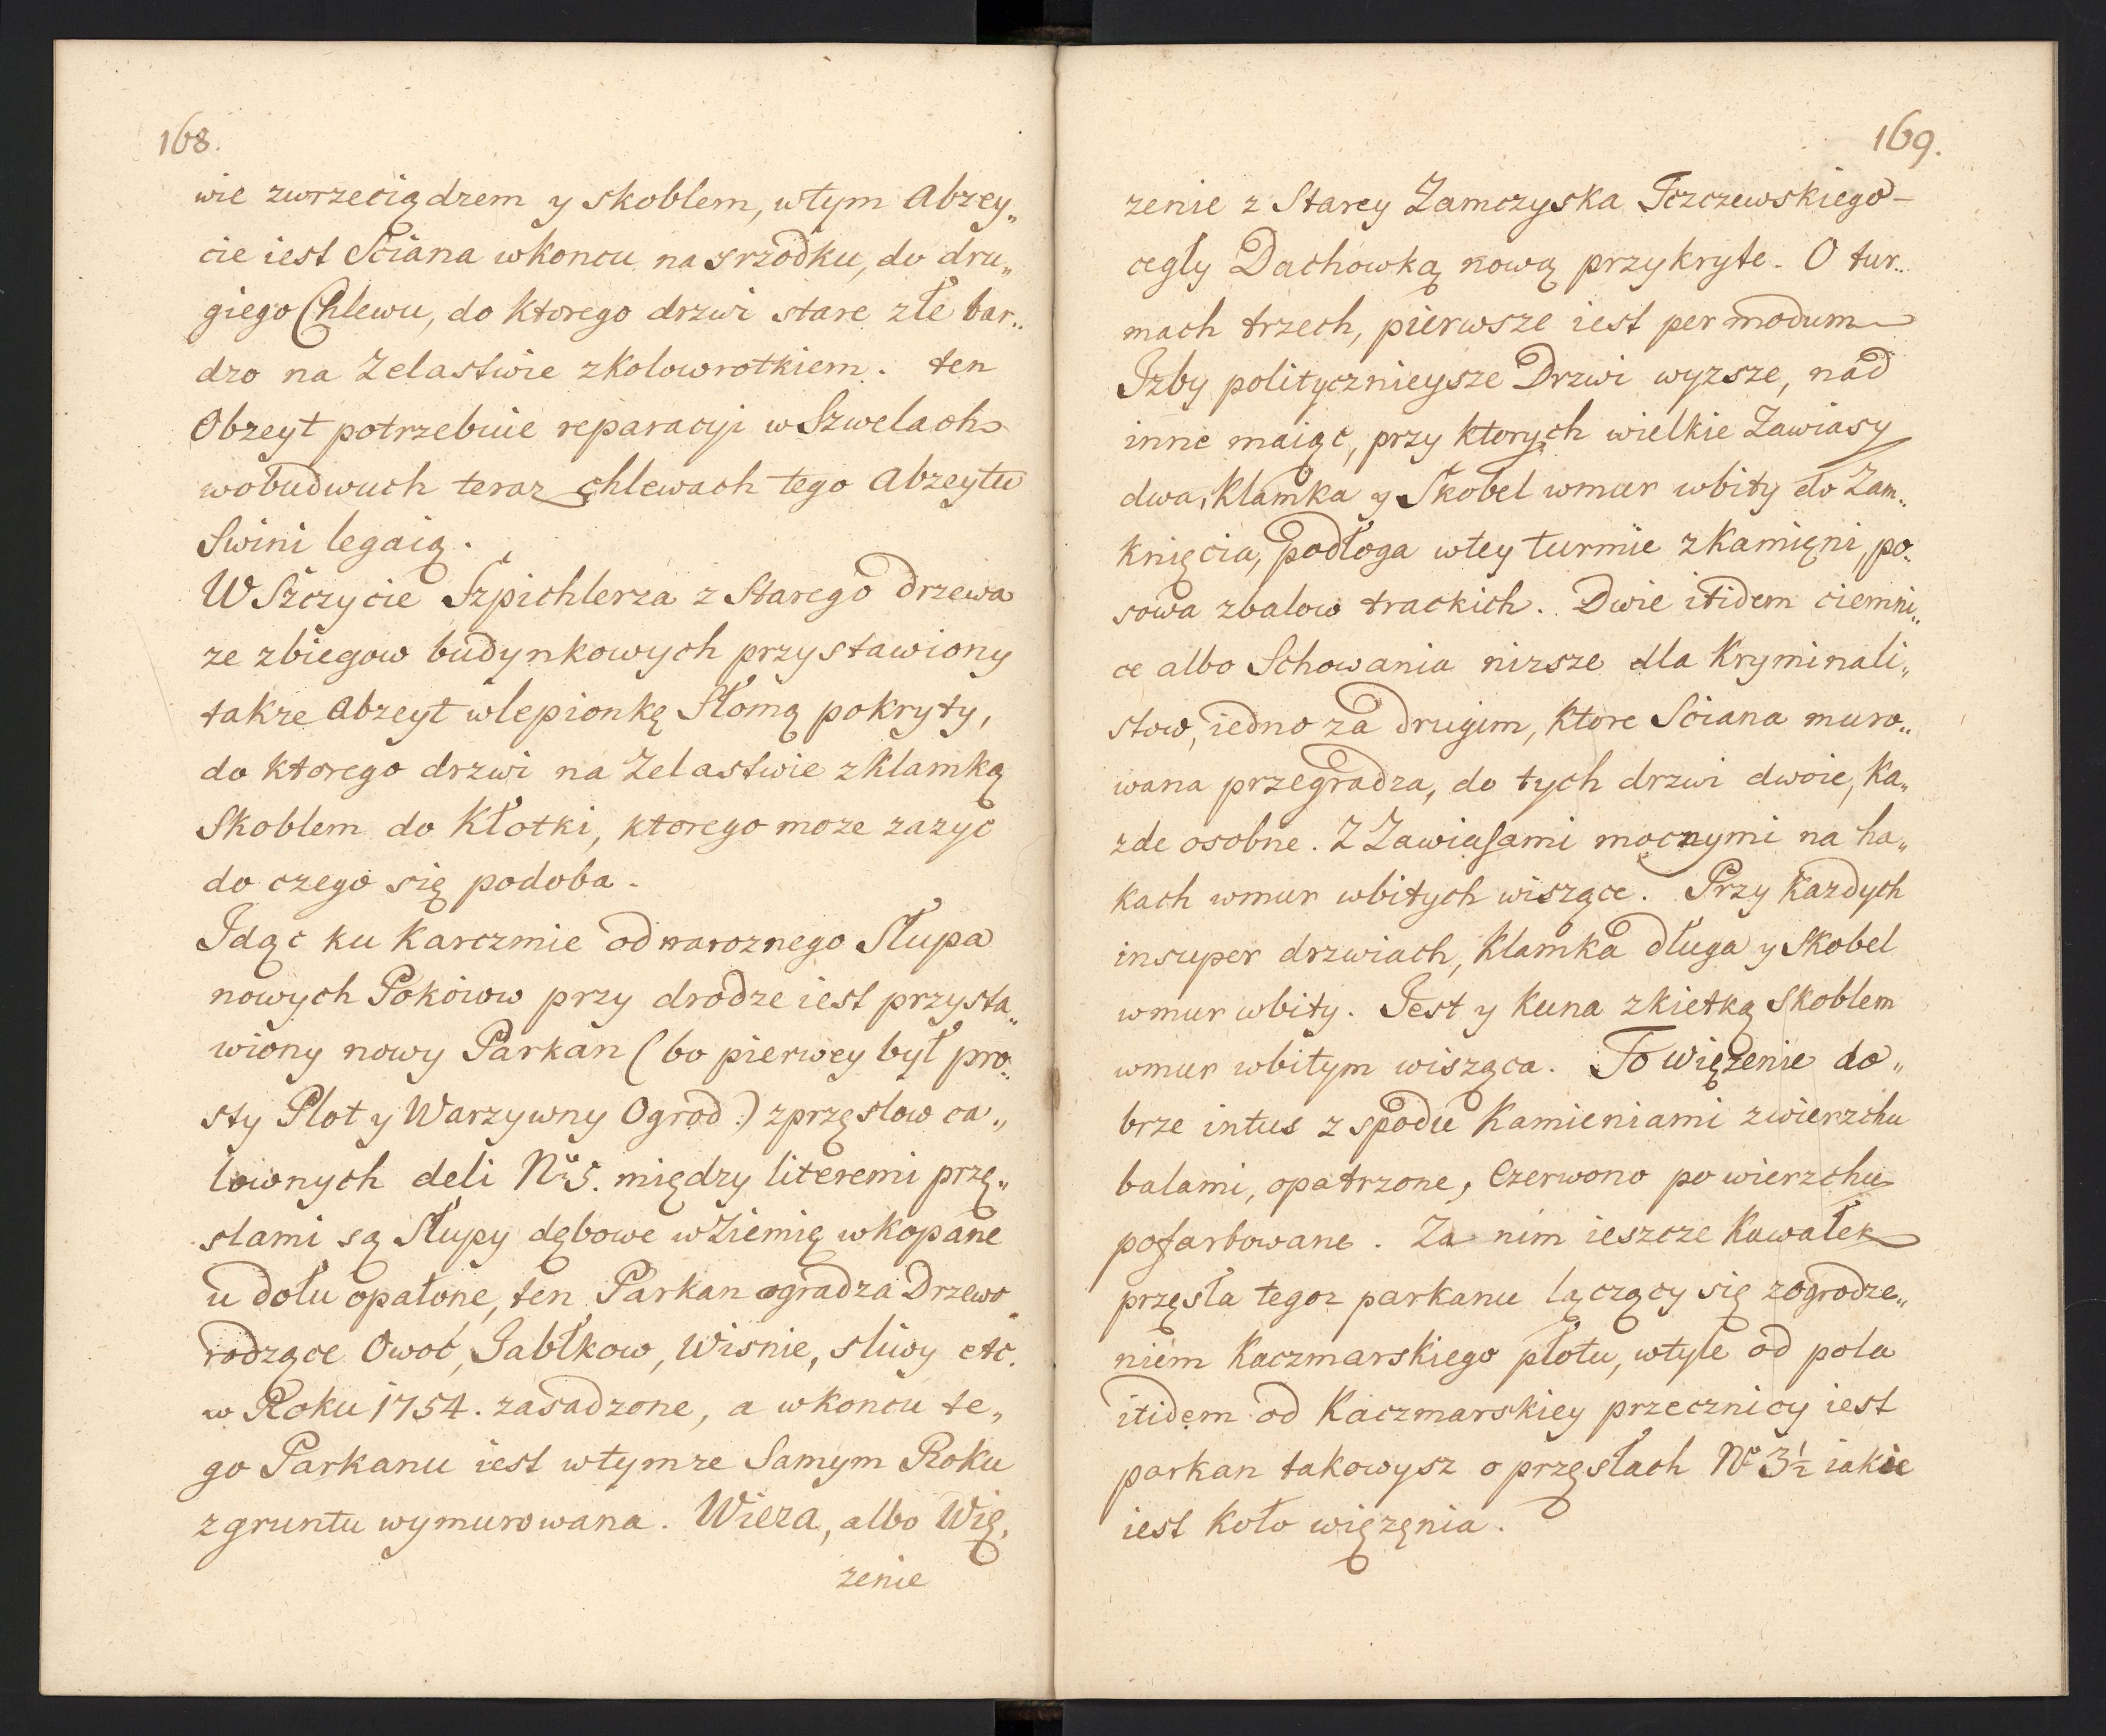 168.
wie zwrzeciądzem y skoblem, wtym Abzey„
cie iest Sciana wkoncu na srzodku, do dru„
giego Chlewu, do ktorego drzwi stare złe bar„
dzo na Zelastwie zkolowrotkiem. ten
Obzeyt potrzebuie reparacyi w Szwelach
wobudwuch teraz chlewach tego Abzeytu
Swini legaią.
W Szczycie Szpichlerza z Starego drzewa
ze zbiegow budynkowych przystawiony
takze Abzeyt wlepionkę Słomą pokryty,
do ktorego drzwi na Zelastwie z klamką
Skoblem do Kłotki, ktorego moze zazyc
do czego się podoba.
Idąc ku Karczmie od naroznego Słupa
nowych Pokoiow przy drodze iest przysta„
wiony nowy Parkan (bo pierwey był pro„
sty Plot y Warzywny Ogrod.) zprzęslow ca„
lownych deli No 5. między literemi przę„
slami są Słupy dębowe w Ziemię wkopane
u dołu opałone, ten Parkan ogradza Drzewo
rodzące Owoc, Jabłkow, Wisnie, sliwy etc.
w Roku 1754. zasadzone, a wkoncu te„
go Parkanu iest wtymze Samym Roku
zgruntu wymurowana. Wieza, albo Wię„
zenie
169.
zenie z Starey Zamczyska Tczczewskiego
cegły Dachowką nową przykryte. O tur„
mach trzech, pierwsze iest per modum
Izby politycznieysze Drzwi wyzsze, nad
inne maiąc, przy ktorych wielkie Zawiasy
dwa, Klamka y Skobel wmur wbity do Zam„
knięcia, podłoga wtey turmie z kamięni, po„
sowa zbalow trackich. Dwie itidem ciemni„
ce albo Schowania nizsze dla Kryminali„
stow, iedno za drugim, ktore Sciana muro„
wana przegradza, do tych drzwi dwoie, ka„
zde osobne. Z Zawiasami mocnymi na ha„
kach wmur wbitych wiszące. Przy kazdych
insuper drzwiach, Klamka długa y Skobel
wmur wbity. Jest y Kuna zkietką Skoblem
wmur wbitym wisząca. To więzenie do„
brze intus z spodu Kamieniami zwierzchu
balami, opatrzone, Czerwono po wierzchu
pofarbowane. Za nim ieszcze Kawałek
przęsła tegoz parkanu lączący się zogrodze„
niem Kaczmarskiego płotu, wtyle od pola
itidem od Kaczmarskiey przecznicy iest
parkan takowysz o przęsłach No 3½ iakie
iest Koło więzęnia.